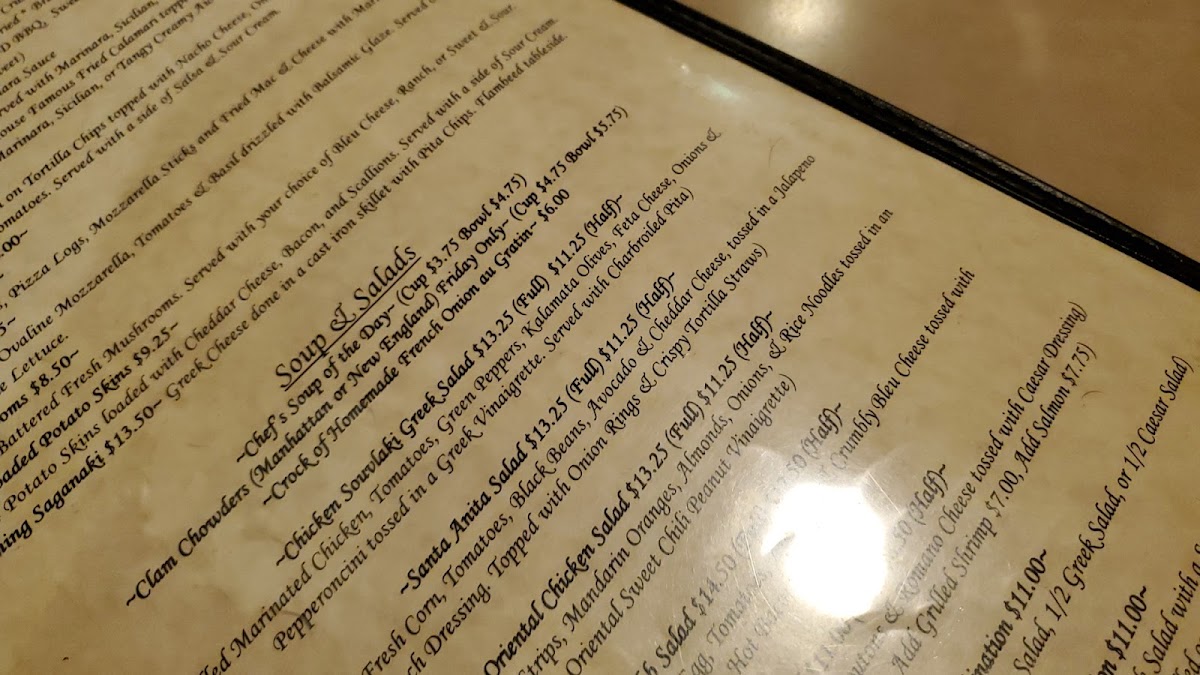 D BBQ, Swe
served with Marinara, Sicilian,
House Famous Fried Calamari topp
Marinara, Sicilian, or Tangy Creamy
on Tortilla Chips topped with Nacho Cheese, On
omatoes. Served with a side of Salsa & Sour Cream.
.00~
, Pizza Logs, Mozzarella Sticks and Fried Mac & Cheese with Mari
5~
Ovaline Mozzarella, Tomatoes & Basil drizzled with Balsamic Glaze. Served
e Lettuce.
oms $8.50~
Battered Fresh Mushrooms. Served with your choice of Bleu Cheese, Ranch, or Sweet & Sour.
oaded Potato Skins $9.25~
Potato Skins loaded with Cheddar Cheese, Bacon, and Scallions. Served with a side of Sour Cream.
ming Saganaki $13.50~ Greek Cheese done in a cast iron skillet with Pita Chips. Flambeed tableside.
Soup & Salads
~Chef's Soup of the Day~ (Cup $3.75 Bowl $4.75)
~Clam Chowders (Manhattan or New England) Friday Only~ (Cup $4.75 Bowl $5.75)
~Crock of Homemade French Onion au Gratin~ $6.00
~Chicken Souvlaki Greek Salad $13.25 (Full) $11.25 (Half)~
led Marinated Chicken, Tomatoes, Green Peppers, Kalamata Olives, Feta Cheese, Onions &
Pepperoncini tossed in a Greek Vinaigrette. Served with Charbroiled Pita)
~Santa Anita Salad $13.25 (Full) $11.25 (Half)~
Fresh Corn, Tomatoes, Black Beans, Avocado & Cheddar Cheese, tossed in a Jalapeno
ch Dressing. Topped with Onion Rings & Crispy Tortilla Straws)
Oriental Chicken Salad $13.25 (Full) $11.25 (Half)~
Strips, Mandarin Oranges, Almonds, Onions, & Rice Noodles tossed in an
Oriental Sweet Chili Peanut Vinaigrette)
Salad $14.50 (Half)~
Egg, Tomat Crumbly Bleu Cheese tossed with
Hot
.50 (Half)~
& Romano Cheese tossed with Caesar Dressing)
Add Grilled Shrimp $7.00, Add Salmon $7.75)
ination $11.00~
Salad, 1/2 Greek Salad, or 1/2 Caesar Salad)
n $11.00~
Salad with